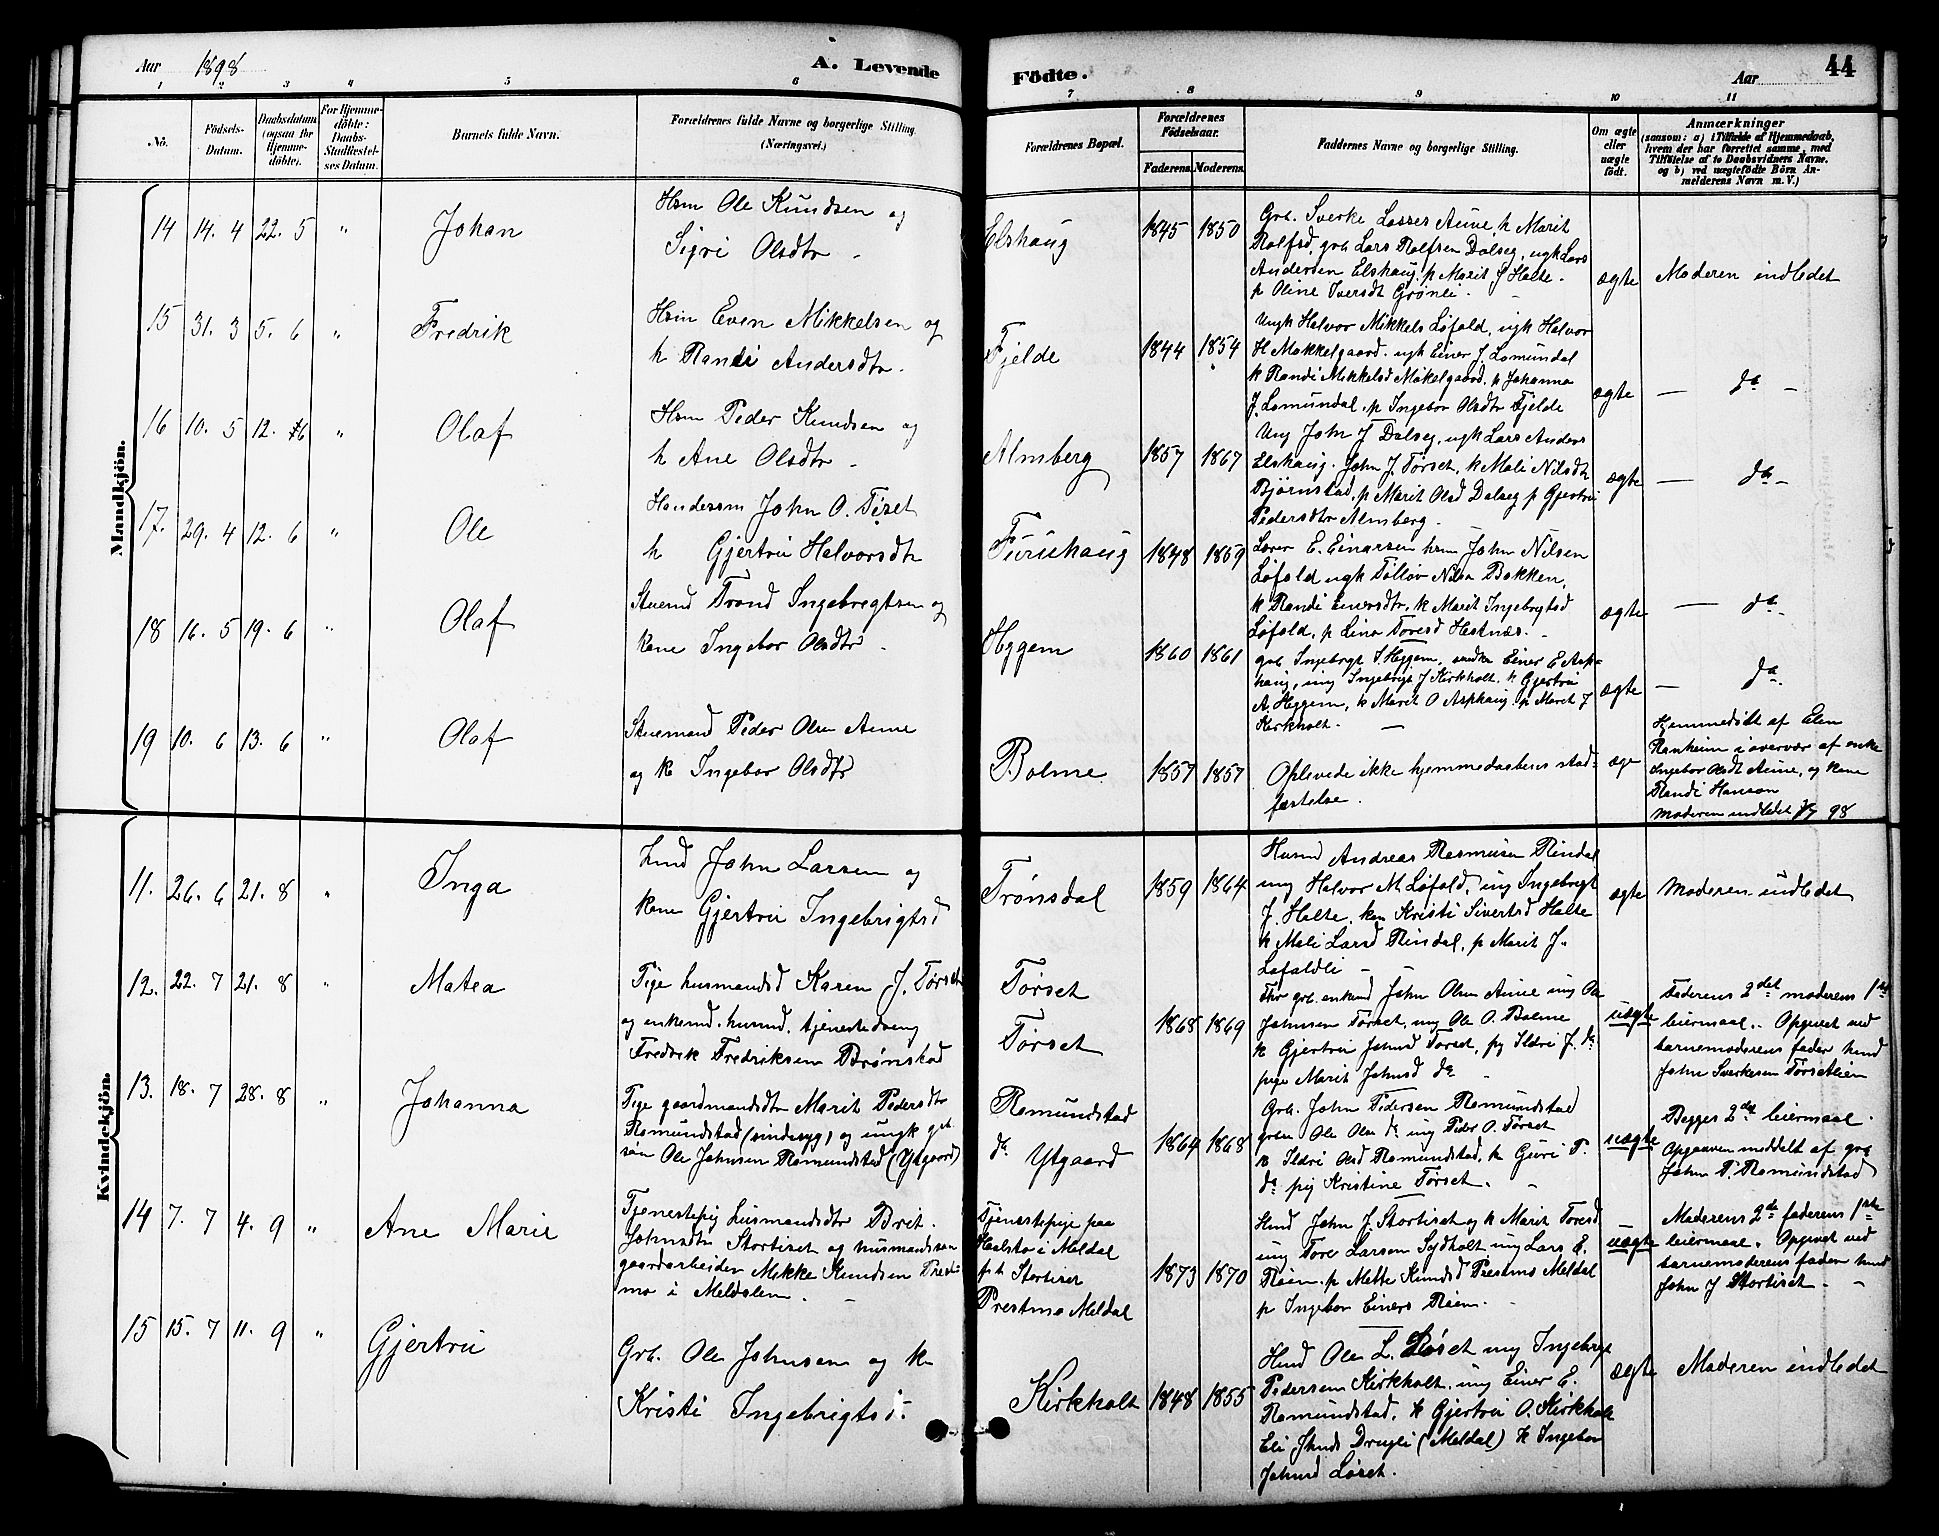 Aar 1898
A. Levende
Födte.
Aar
44
1 2 3 4 5 6 7 8 9 10 11
No.
Födsels-
Datum.
Daabsdatum
(ogsaa for
Hjemme-
döbte).
For Hjemme-
döbte:
Daabs-
Stadfæstel-
ses Datum.
Barnets fulde Navn.
Forældrenes fulde Navne og borgerlige Stilling.
(Næringsvei.)
Forældrenes Bopæl.
Forældrenes
Födselsaar.
Faderens. Moderens.
Faddernes Navne og borgerlige Stilling.
Om ægte
eller
uægte
født.
Anmærkninger
(saasom: a) i Tilfælde af Hjemmedaab,
hvem der har forrettet samme, med
Tilföielse af to Daabsvidners Navne.
og b) ved uægtefödte Börn An-
melderens Navn m. V.)
Mandkjön.
14 14. 4 22. 5 " Johan
Hsm Ole Knudsen og
Sigri Olsdtr -
Elshaug 1845 1850
Grb. Sverke Lasses Aune, h Marit
Rolfsd, grb Lars Rolfsen Dalseg, ugk Lars
Andersen Elshaug, p Marit J Halte.
p Oline Iversdt Grönli. -
ægte
Moderen indledet
15 31. 3 5. 6 " Fredrik
Hsm Even Mikkelsen og
h Randi Andersdtr.
Fjelde 1844 1854
Ungk Halvor Mikkels Løfald, ugk Halvor
H Mokkelgaard. ugk Einer J. Lomundal
k Randi Mikkelsd Mokelgaard, p Johanna
J. Lomundal, p Ingebor Olsdtr Fjelde
ægte
— da —
16 10. 5 12. 6 " Olaf
Hsm Peder Knudsen og
h Ane Olsdtr -
Almberg 1857 1867
Ung John J Dalseg, ugk Lars Anders
Elshaug. John J. Tørset, k Mali Nilsdtr
Bjørnstad, p Marit Olsd Dalseg p Gjertru
Pedersdtr Almberg.
ægte
— da -
17. 29. 4 12. 6 " Ole
Handelsm John O. Tiset
h Gjertru Halvorsdtr
Furuhaug 1848 1859
Lærer E. Einarsen hsm John Nilsen
Løfald ugk Tøllöv Nilsn Bakken,
k Randi Einersdtr, k Marit Ingebrigtsd
Løfald, p Lina Toresd Hestnæs. -
ægte
— da -
18 16. 5 19. 6 " Olaf
Stuemd Trond Ingebregtsen og
kone Ingebor Olsdtr -
Heggem 1860 1861
grb Ingebrgt T. Heggem, Einer E Asp-
haug, ung Ingebrigt J Kirkholt. k Gjertru
A. Heggem, k Marit O Asphaug. p Marit J
Kirkholt. —
ægte
— da.
19 10. 6 13. 6 " Olaf
Stuemand Peder Olsen Aune
og k Ingebor Olsdtr
Bolme 1857 1857
Oplevede ikke hjemmedaabens stad-
fæstelse.
æge
Hjemmedöbt af Elen
Ranheim i overvær af enke
Ingebor Olsdt Aune, og kone
Randi Hanson
Moderen indledet 98
Kvindekjön.
11. 26. 6 21. 8 " Inga
John Larsen og
kone Gjertru Ingebrigtsd
Trønsdal 1859 1864
Husmd Andreas Rasmusen Rindal
ung Halvor M. Løfald, ung Ingebrigt
J. Halte, kon Kristi Sivertsd Halte
k Mali Larsd Rindal, p Marit J.
Løfaldli —
ægte
Moderen indledet
12. 22. 7 21. 8 " Matea
Pige husmandsd Karen J. Tørset
og enkemd. husmd, tjenestedreng
Fredrik Fredriksen Brønstad
Tørset
Tørset
1868 1869
grb. enkemd John Olsen Aune ung Ole
Johnsen Tørset, ung Ole O. Bolme
k Gjertru Johnsd Tørset, pg Ildri J. da
pige Marit Johnsd da -
uægte
Faderens 2det moderens 1ste
leiermaal. Opgivet ved
barnemoderens fader husmd
John Sverkesen Tørsetlien
13. 18. 7 28. 8 " Johanna
Pige gaardmandsdtr Marit Pedersdtr
Romundstad (sindssyg) og ungk grb.
søn Ole Johnsen Romundstad (Ytgaard)
Romundstad
da Ytgaard
1864 1868
Grb. John Pedersen Romundstad
grbm Ole Olsn da ung Peder O. Tørset
k Ildri Olsd Romundstad, k Guri T.
da pig Kristine Tørset. -
uægte
Begges 2det leiermaal.
Opgaven meddelt af grb
John P. Romundstad
14 7. 7 4. 9 " Ane Marie
Tjenestepig husmandsdtr Brit.
Johnsdtr Stortiset og husmandssøn
gaardarbeider Mikke Knudsen Prest-
mo i Meldalen. -
Tjenestepige paa
i Meldal
f.t. Stortiset
Prestmo Meldal
1873 1870
Husmd John J. Stortiset og k Marit Toresd
ung Tore Larsen Sydholt ung Lars E.
Røen. p Mette Knudsd Prestmo Meldal
p Ingebor Einers Røen. -
uægte
Moderens 2det faderens 1ste
leiermaal. Opgivet ved
barnemoderens fader husmd
John J Stortiset. -
15 15. 7 11. 9 " Gjertru
Grb. Ole Johnsen og k
Kristi Ingebrigtsd.
Kirkholt 1848 1855
Husmd Ole L. Løset ung Ingebrigt
Pedersen Kirkholt, ung Einer E.
Romundstad, k Gjertru O. Kirkholt
Eli Drugli (Meldal) k Ingebor
Johnsd Løset.
ægte
Moderen indledet